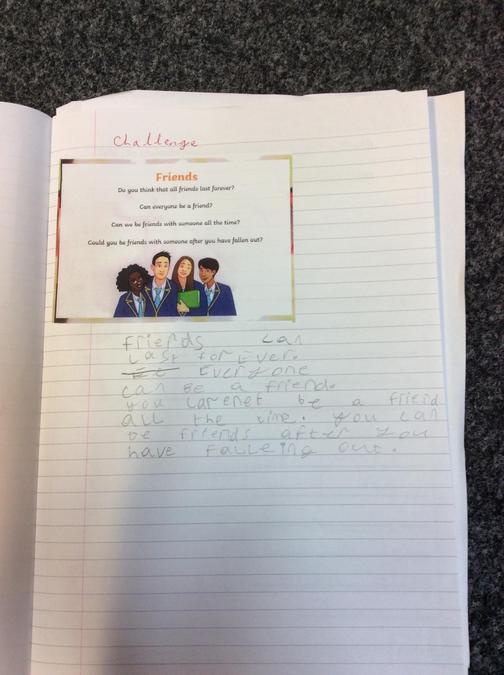 Challenge
Friends
Do you think that all friends last forever?
Can everyone be a friend?
Can we be friends with someone all the time?
Could you be friends with someone after you have fallen out?
friends can
Last for Ever.
Everyone
can Be a friend.
you carenet be a frieid
all the time. you can
be friends after you
have falleing out.